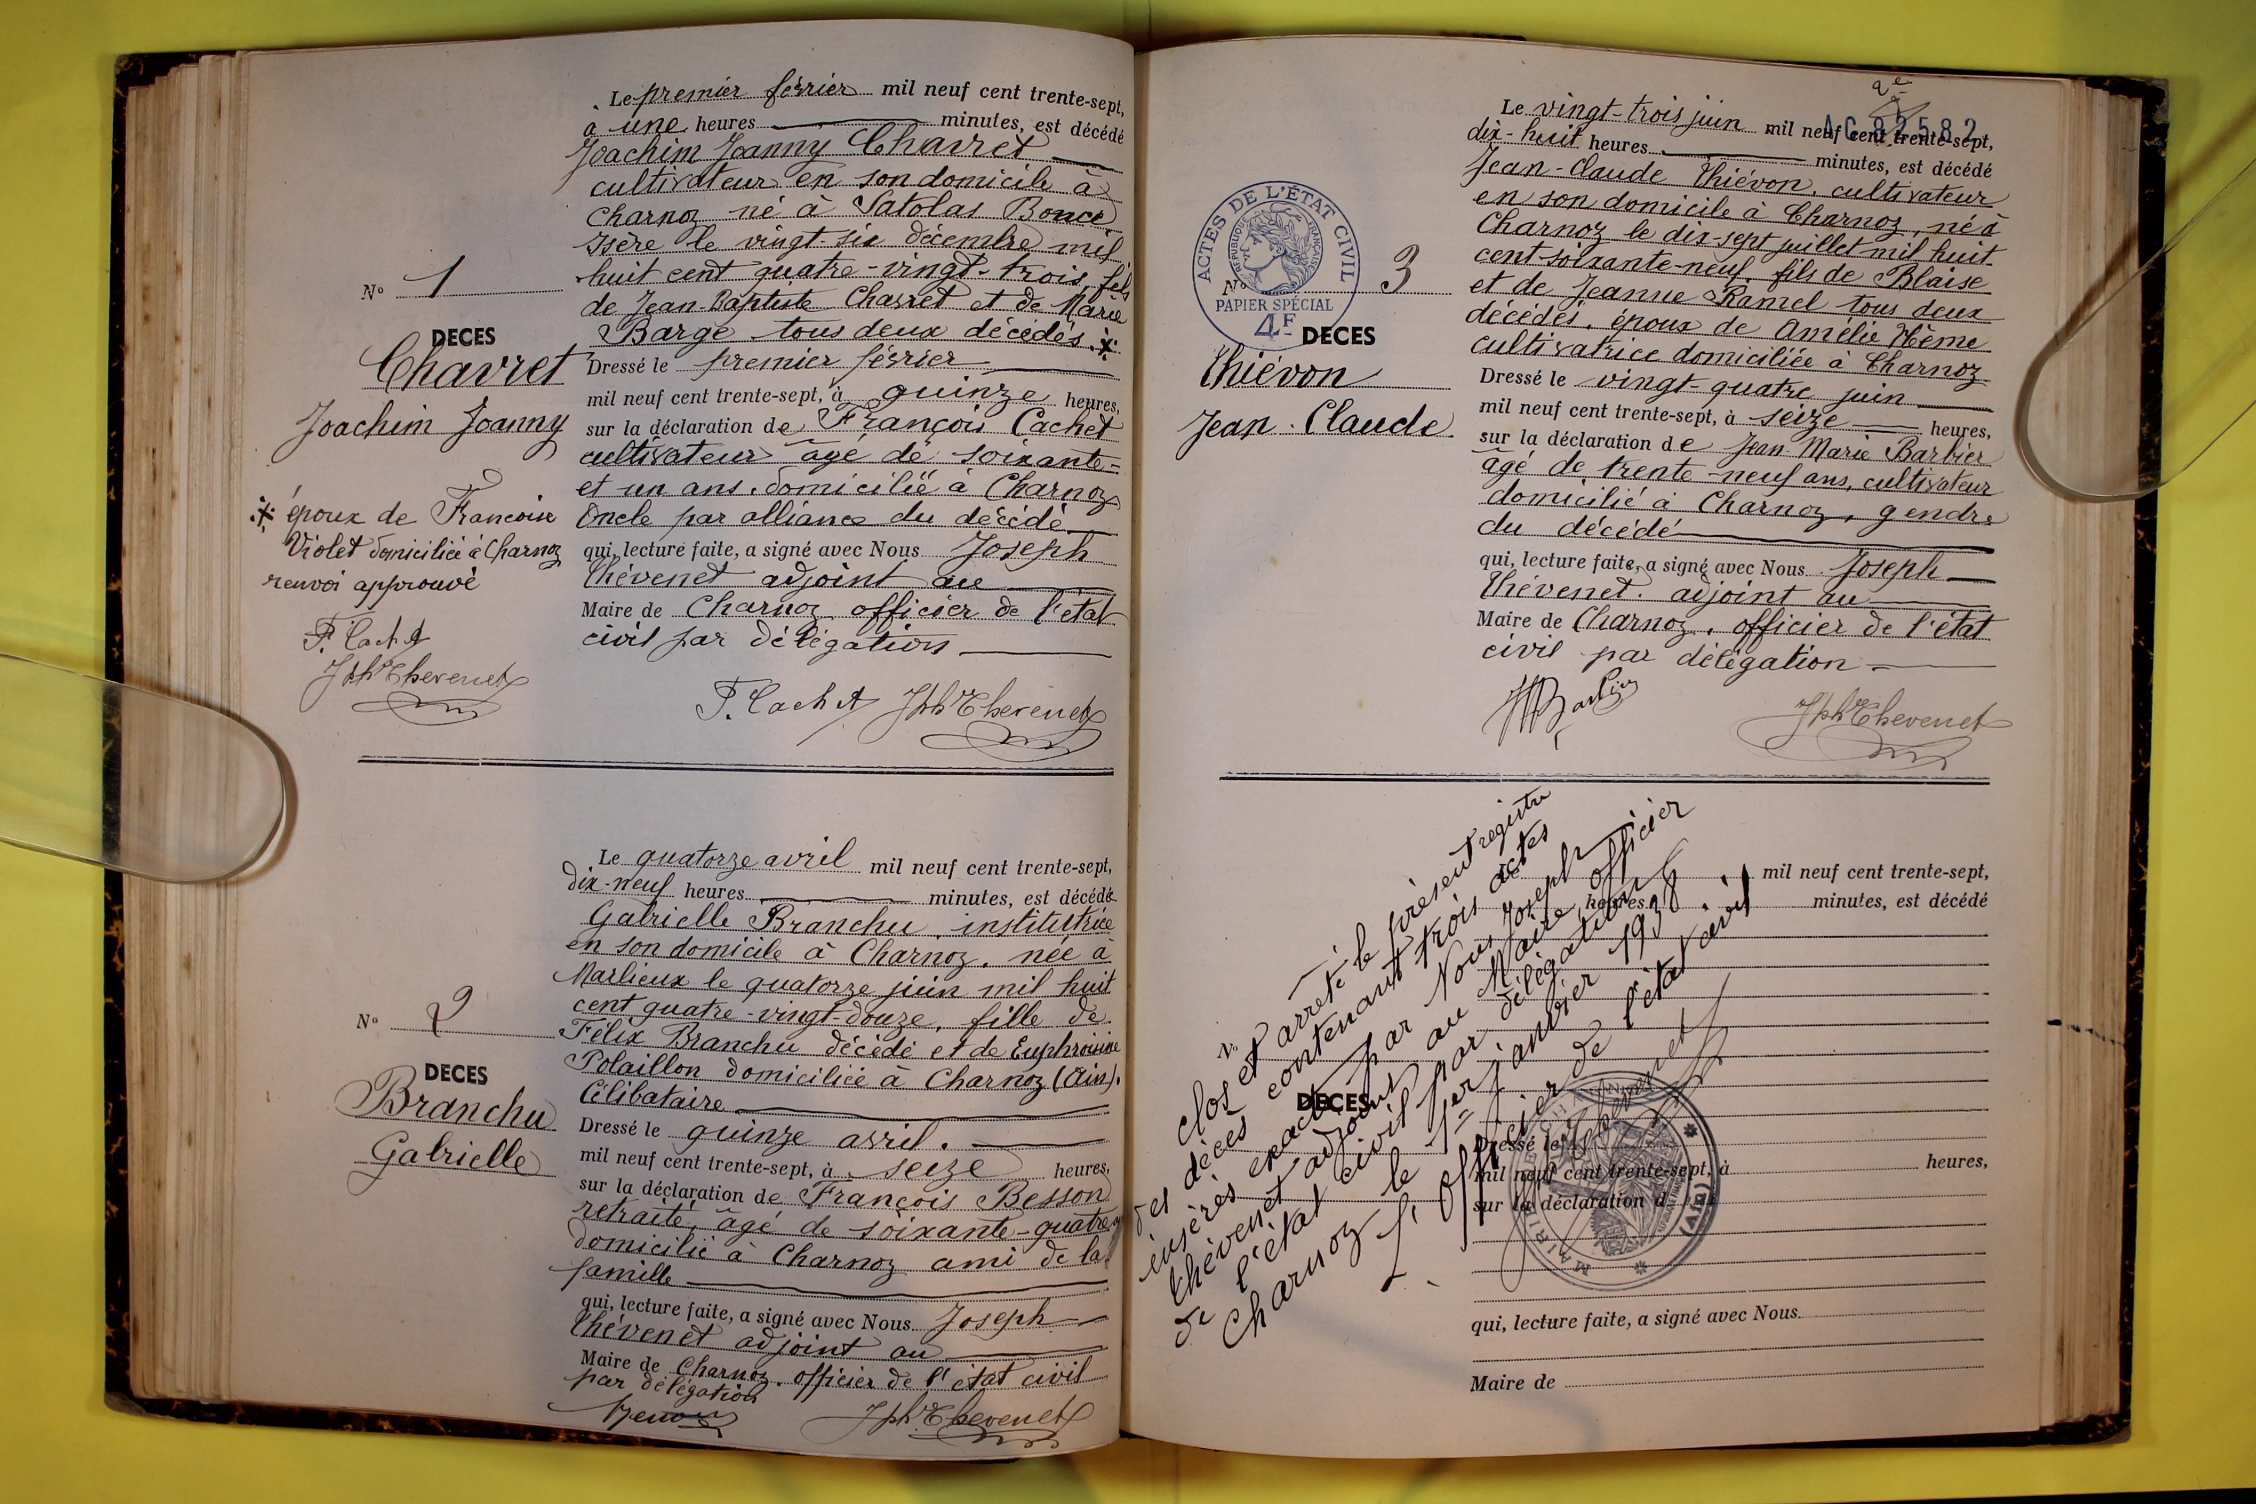 Le premier février mil neuf cent trente-sept,
à une heures minutes, est décédé
Joachim Joanny Chavret
cultivateur en son domicile à
Charnoz né à Satolas Bonce
Isère le vingt-six décembre mil
huit cent quatre-vingt-trois, fils
de Jean-Baptiste Chavret et de Marie
Barge tous deux décédés. ⁜
Dressé le premier février
mil neuf cent trente-sept, à quinze heures,
sur la déclaration de François Cachet
cultivateur âgé de soixante-
et un ans. domicilié à Charnoz
Oncle par alliance du décédé
qui, lecture faite, a signé avec Nous Joseph
Thévenet adjoint au
Maire de Charnoz officier de l'état
civil par délégation
F. Cachet Jph Thevenet
N° 1
DECES
Chavret
Joachim Joanny
⁜ époux de Francoise
Violet domiciliée à Charnoz
renvoi approuvé
F. Cachet
Jph Thevenet
Le quatorze avril mil neuf cent trente-sept,
dix-neuf heures minutes, est décédée
Gabrielle Branchu, institutrice
en son domicile à Charnoz. née à
Marlieux le quatorze juin mil huit
cent quatre-vingt-douze, fille de
Félix Branchu décédé et de Euphroisine
Polaillon domiciliée à Charnoz (Ain).
Célibataire
Dressé le quinze avril.
mil neuf cent trente-sept, à seize heures,
sur la déclaration de François Besson
retraité, âgé de soixante-quatre
domicilié à Charnoz ami de la
famille
qui, lecture faite, a signé avec Nous Joseph
Thévenet adjoint au
Maire de Charnoz. officier de l'état civil
par délégation
Jph Thevenet
N° 2
DECES
Branchu
Gabrielle
2e
AC 82582
Le vingt-trois juin mil neuf cent trente-sept,
dix-huit heures minutes, est décédé
Jean-Claude Thiévon. cultivateur
en son domicile à Charnoz, né à
Charnoz le dix-sept juillet mil huit
cent-soixante-neuf, fils de Blaise
et de Jeanne Ramel tous deux
décédés. époux de Amélie Hême
cultivatrice domiciliée à Charnoz
Dressé le vingt-quatre juin
mil neuf cent trente-sept, à seize heures,
sur la déclaration de Jean Marie Barbier
âgé de trente-neuf ans, cultivateur
domicilié à Charnoz, gendre
du décédé
qui, lecture faite, a signé avec Nous Joseph
Thévenet. adjoint au
Maire de Charnoz, officier de l'état
civil par délégation
JM Barbier Jph Thevenet
ACTES DE L'ÉTAT CIVIL
REPUBLIQUE FRANÇAISE
PAPIER SPÉCIAL
4F
N° 3
DECES
Thiévon
Jean-Claude
Clos et arreté le présent registre
des décès contenant trois actes
insérés exactt par Nous, Joseph
Thévenet adjoint au Maire officier
de l'état civil par délégation
Charnoz le 1er janvier 1938
L'officier de l'état civil
Jph Thevenet
MAIRIE DE CHARNOZ (Ain)
N°
DECES
mil neuf cent trente-sept,
heures minutes, est décédé
Dressé le
mil neuf cent trente-sept, à heures,
sur la déclaration d
qui, lecture faite, a signé avec Nous
Maire de